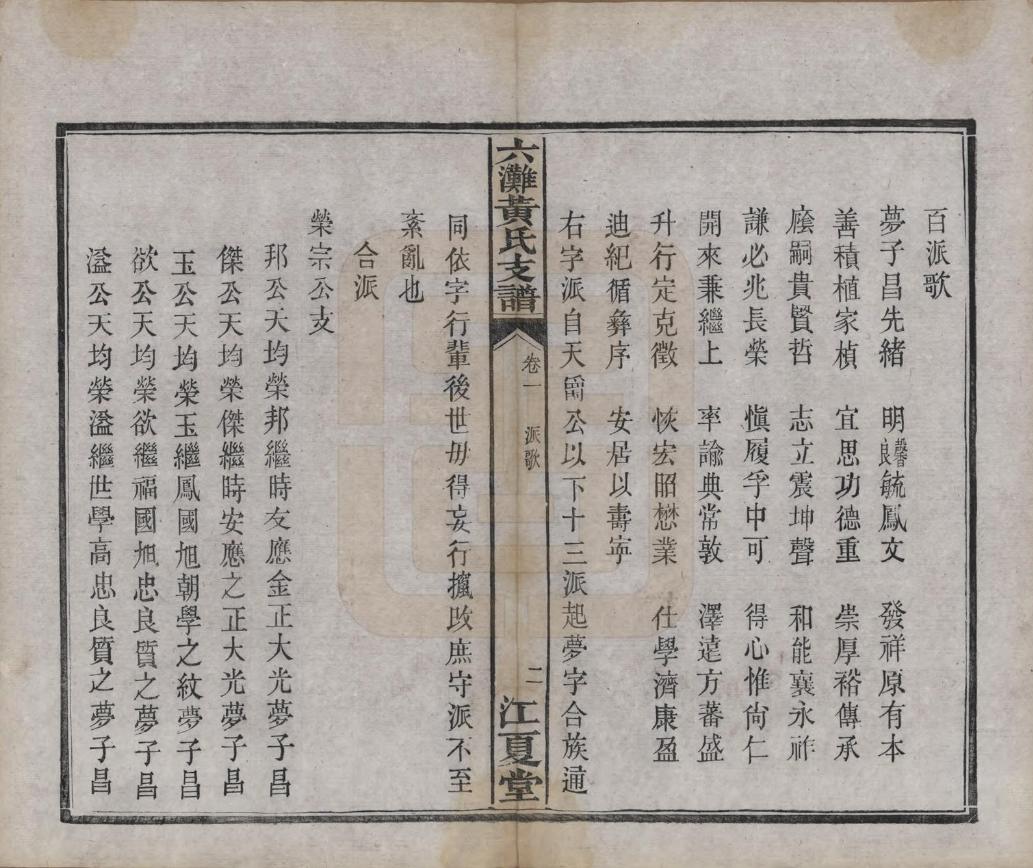 百派歌
夢子昌先緒　明馨良毓鳳文　發祥原有本
善積植家楨　宜思功德重　崇厚裕傳承
廕嗣貴賢哲　志立震坤聲　和能襄永祚
謙必兆長榮　慎履孚中可　得心惟尙仁
開來秉繼上　率諭典常敦　澤遠方蕃盛
升行定克徵　恢宏昭懋業　仕學濟康盈
迪紀循彝序　安居以壽寧
右字派自天爵公以下十三派起夢字合族通
六灘黃氏支譜
卷一　派歌
二
江夏堂
同依字行輩後世毋得妄行攛改庶守派不至
紊亂也
合派
榮宗公支
邦公天均榮邦繼時友應金正大光夢子昌
傑公天均榮傑繼時安應之正大光夢子昌
玉公天均榮玉繼鳳國旭朝學之紋夢子昌
欲公天均榮欲繼福國旭忠良質之夢子昌
溢公天均榮溢繼世學高忠良質之夢子昌